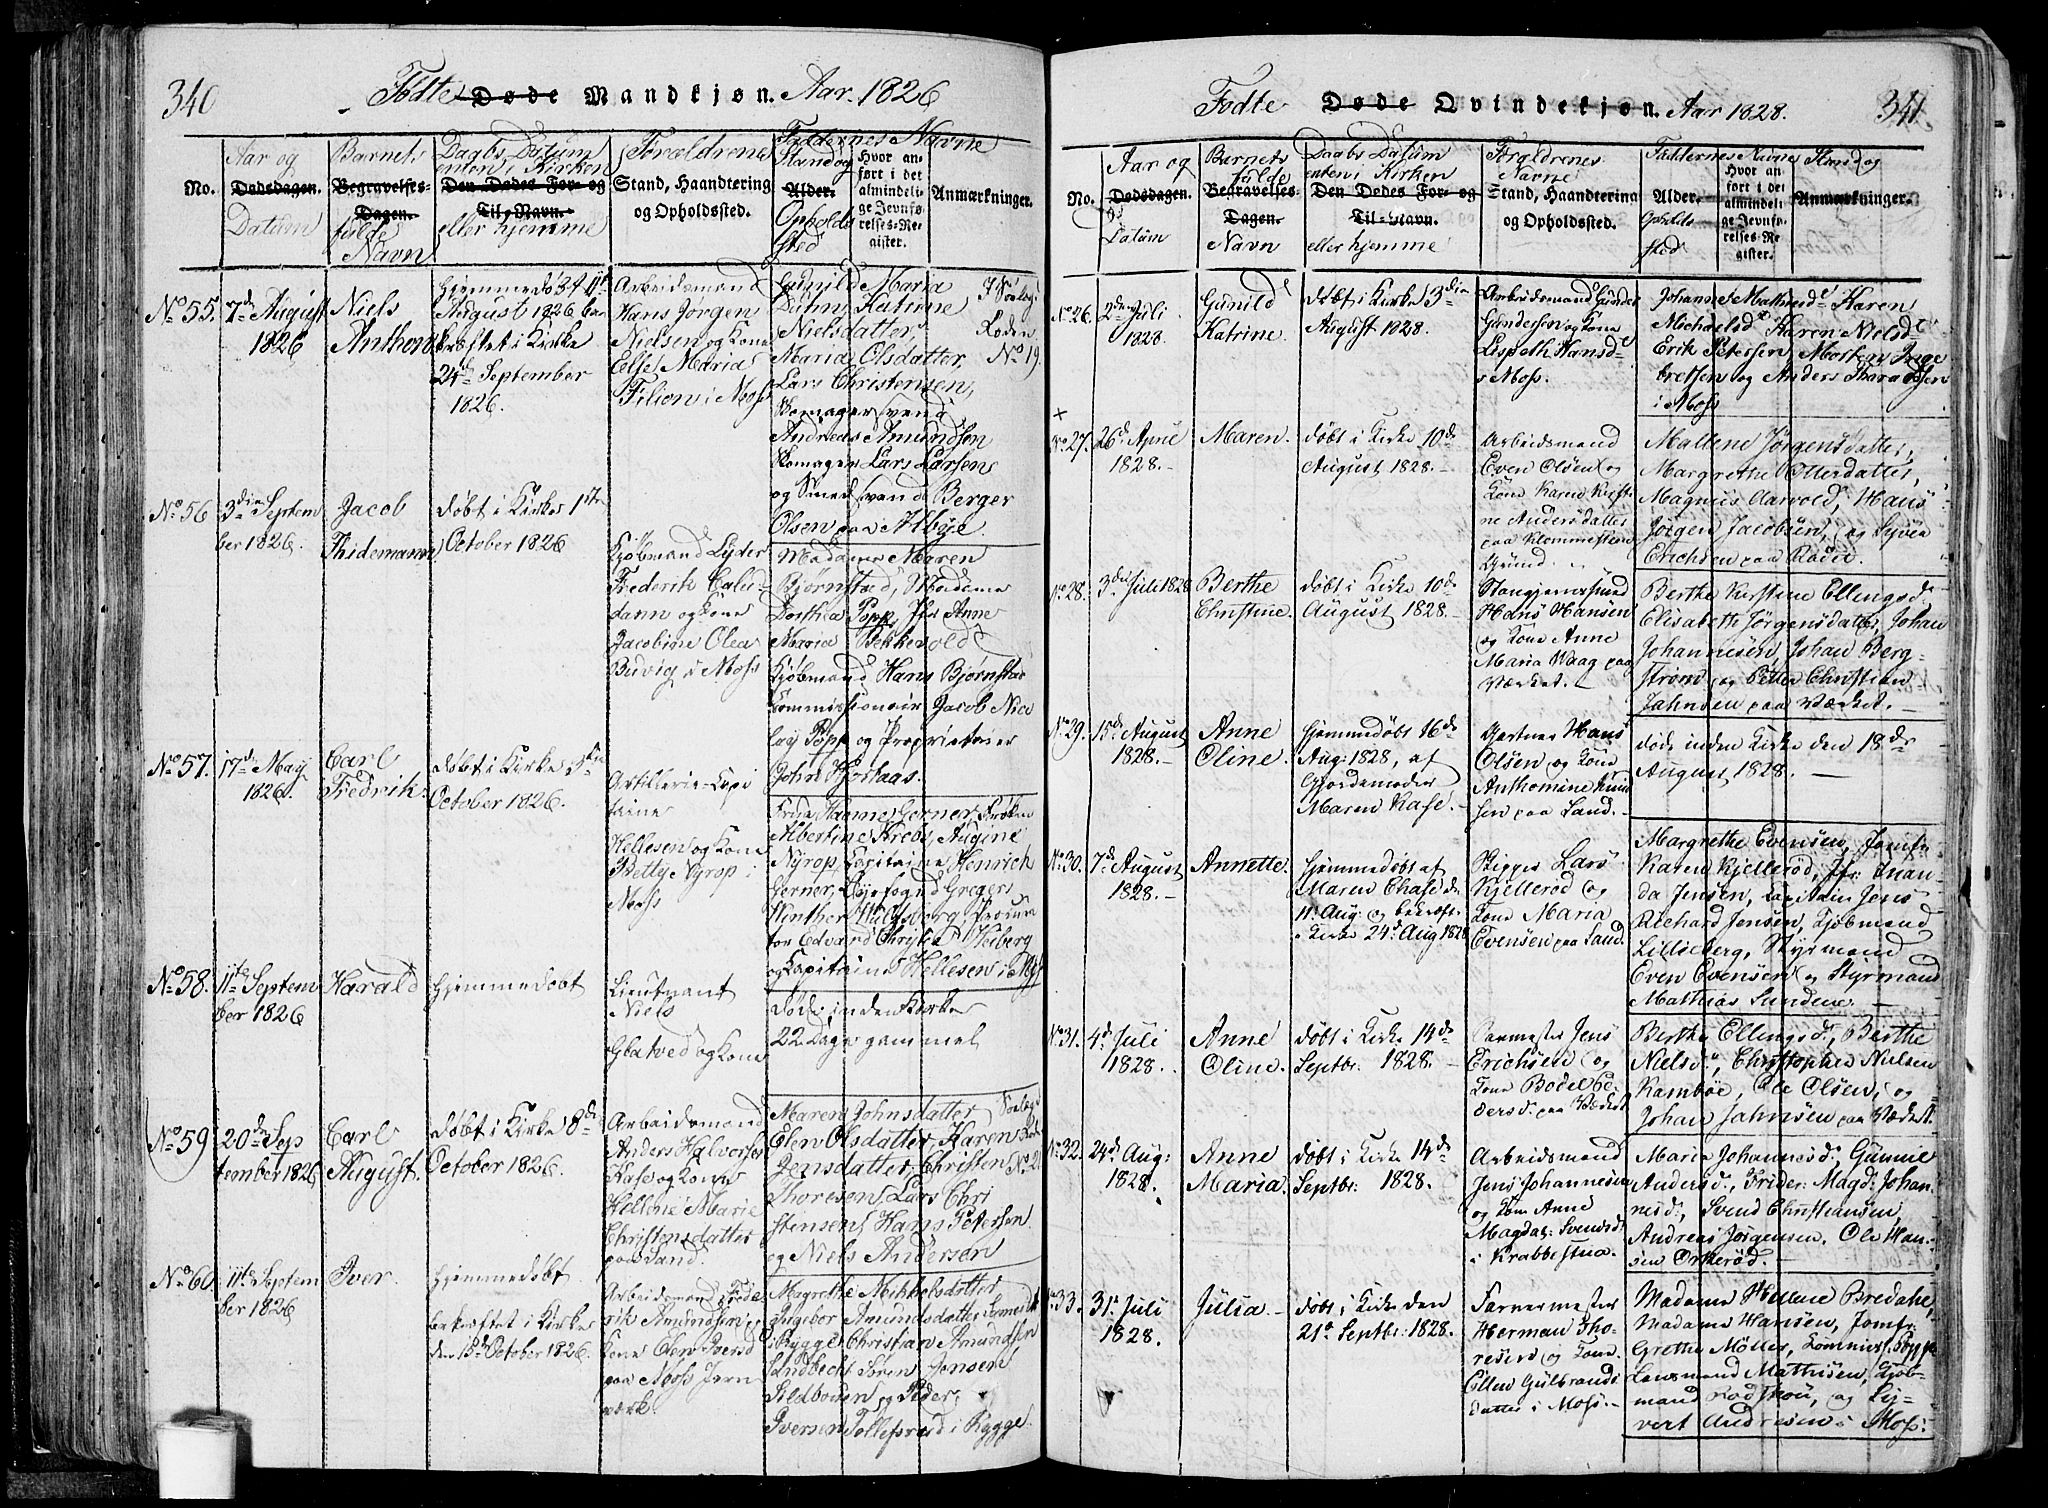 340
Fødte Døde Mandkjøn. Aar. 1826
No.
Aar og
Dødsdagen.
Datum
Barnets
Begravelses-
Dagen.
fulde
Navn
Daabs Datum
enten i Kirken
Den Dødes For- og
Til-Navn.
eller hjemme
Forældrene
Stand, Haandtering
og Opholdssted.
Faddernes Navne
Stand og
Alder.
Opholds
sted
Hvor an-
ført i det
almindeli-
ge Jevnfø-
relses-Re-
gister.
Anmærkninger.
No 55.
7de August
1826
Niels
Anthon
Hjemmedøbt
August 1826 be
kræftet i Kirke
24de September
1826.
Arbeidsmand
Hans Jørgen
Nielsen og Kone
Else Maria
Filion i Moss
Gunild Maria
Katrine
Nielsdatter,
Maria Olsdatter,
Lars Christensen,
Skomagersvend
Andreas Amundsen
Skomager Lars Larsen
og Smedsvend Berger
Olsen paa Albye.
No 19.
No 56
3die Septem
ber 1826.
Jacob
Thidemann
døbt i Kirke 1ste
October 1826
Kjøbmand Lyder
Frederik Calu-
dann og Kone
Jacobine Olea
Budvig i Moss
Madame Maren
Bjørnstad, Madame
Dorthea Popp, Jfr Anne
Maria Bekkevold
Kjøbmand Hans Bjørnstad
Commissionair Jacob Nico
lay Popp og Proprietair
John Hjortaas.
No 57.
17de May
1826.
Carl
Fredrik.
døbt i Kirke
October 1826.
Artillerie-Capi
taine
Hellesen og Kone
Bettye Nyrop i
Moss
Frue Hanne Gerner, Frøken
Albertine Krebs, Augine
Nyrop, Capitaine Henrich
Gerner, Byefogd Gregers
Winther Wulfsberg, Procura
tor Edvard Christie Heiberg
og Capitaine Hellesen i Moss
No 58.
11te Septem
ber 1826
Harald
Hjemmedøbt
Lieutnant
Niels
Glatved og Kone
død inden Kirke
22 Dage gammel
No 59
20de Sep
tember 1826
Carl
August.
døbt i Kirke 8de
October 1826.
Arbeidsmand
Anders Halvorsen
Kase og Kone
Hellene Marie
Christensdatter
paa Land.
Maren Johnsdatter
Elen Olsdatter, Karen
Jensdatter, Christen
Thoresen, Lars Chri
stensen, Hans Petersen
og Niels Anderson
No 60
11te Septem
ber 1826
Iver.
Hjemmedøbt
bekræftet i Kirke
den 15de October 1826.
Arbeidsmand Fride
rik Amundsen og
Kone Elen Iversd
paa Moss Jern
værk.
Magrethe Mikkelsdatter
Ingebor Amundsdatter
i Rygge, Christian Amundsen
Sandbecht, Søren Jensen
Sildboden og Peder
Iversen Tollefsrød i Rygge
341
Fødte Døde Qvindekjøn. Aar 1828.
No.
Aar og
Dødsdagen.
Datum
Barnets
fulde
Begravelses-
Dagen.
Navn
Daabs Datum
enten i Kirken
Den Dødes For- og
Til-Navn.
eller hjemme
Forældrenes
Navne
Stand, Haandtering
og Opholdssted.
Faddernes Navne Stand og
Alder.
Opholds
sted
Hvor an-
ført i det
almindeli-
ge Jevnfø-
relses-Re-
gister.
Anmærkninger.
No 26.
2de Juli
1828
Gunild
Katrine.
døbt i Kirke 3die
August 1828.
Arbeidsmand Gunder
Gundersen og Kone
Lispeth Hansd
i Moss.
Johanne Mathreisd Karen
Michaelsd Karen Nielsd
Erik Petersen, Morten Inge
bretsen og Anders Tharaldsen
i Moss
No 27.
26de April
1828.
Maren.
døbt i Kirke 10de
August 1828.
Arbeidsmand
Even Olsen og
Kone Karen Kirsti-
ne Andersdatter
paa Klommesteen
Grund.
Mallene Jørgensdatter,
Margrethe Ottersdatter,
Magnus Aarvold, Hans
Jørgen Jacobsen, og Syver
Erichsen paa Rosie.
No 28.
3die Juli 1828
Berthe
Christine.
døbt i Kirke 10de
August 1828.
Stangjernssmed
Hans Hansen
og Kone Anne
Maria Waag paa
Værket.
Berthe Kirstine Ellingsd.
Elisabeth Jørgensdatter, Johan
Johannesen, Johan Berg-
strøm og Petter Christian
Jahnsen paa Værket.
No 29.
15de August
1828.
Anne
Oline.
hjemmedøbt 16de
Aug: 1828, af
Gjordemoder
Maren Kase.
Gartner Hans
Olsen og Kone
Anthomine Knud
sen paa Land.
døde inden Kirke den 18de
August 1828.
No 30.
7de August
1828.
Annette.
hjemmedøbt af
Maren Chase den
11te Aug: og bekræft.
i Kirke 24de Aug 1828
Rigger Lars
Kjellerød og
Kone Maria
Evensen paa Land.
Margrethe Evensen, Jomfr
Karen Kjellerød, Jfr: Inan-
da Jensen, Capitain Jens
Richard Jensen, Kjøbmand
Lilloeberg, Styrmand
Even Evensen og Styrmand
Mathias Sundene.
No 31.
4de Juli
1828.
Anne
Oline.
døbt i Kirke 14de
Septbr: 1828.
Jens
Erichsen og
Kone Bodel Pe-
dersd: paa Værket
Berthe Ellingsd., Berthe
Nielsd, Christopher Nielsen
Kamboe, Ole Olsen, og
Johan Jahnsen paa Værket.
No 32.
24de Aug:
1828.
Anne
Maria.
døbt i Kirke 14de
Septbr: 1828.
Arbeidsmand
Jens Johannesen
og Kone Anne
Magdal: Svendsd:
i Krabbestua.
Maria Johannesd., Gunnie
Andersd., Frider: Magd: Johan-
nesd:, Svend Christiansen,
Andreas Jørgensen. Ole Han-
sen Orkerød.
No 33.
31te Juli
1828.
Julia
døbt i Kirke den
21de Septbr: 1828.
Farvermester
Herman Tho-
resen og Kone
Ellen Gulbrands
datter i Moss.
Madame Hellene Bredahl,
Madame Hansen, Jomfr:
Grethe Møller, Commiss. Fogge
Lensmand Mathisen, Kjøb-
mand Rodskou, og Sy-
vert Andresen i Moss.